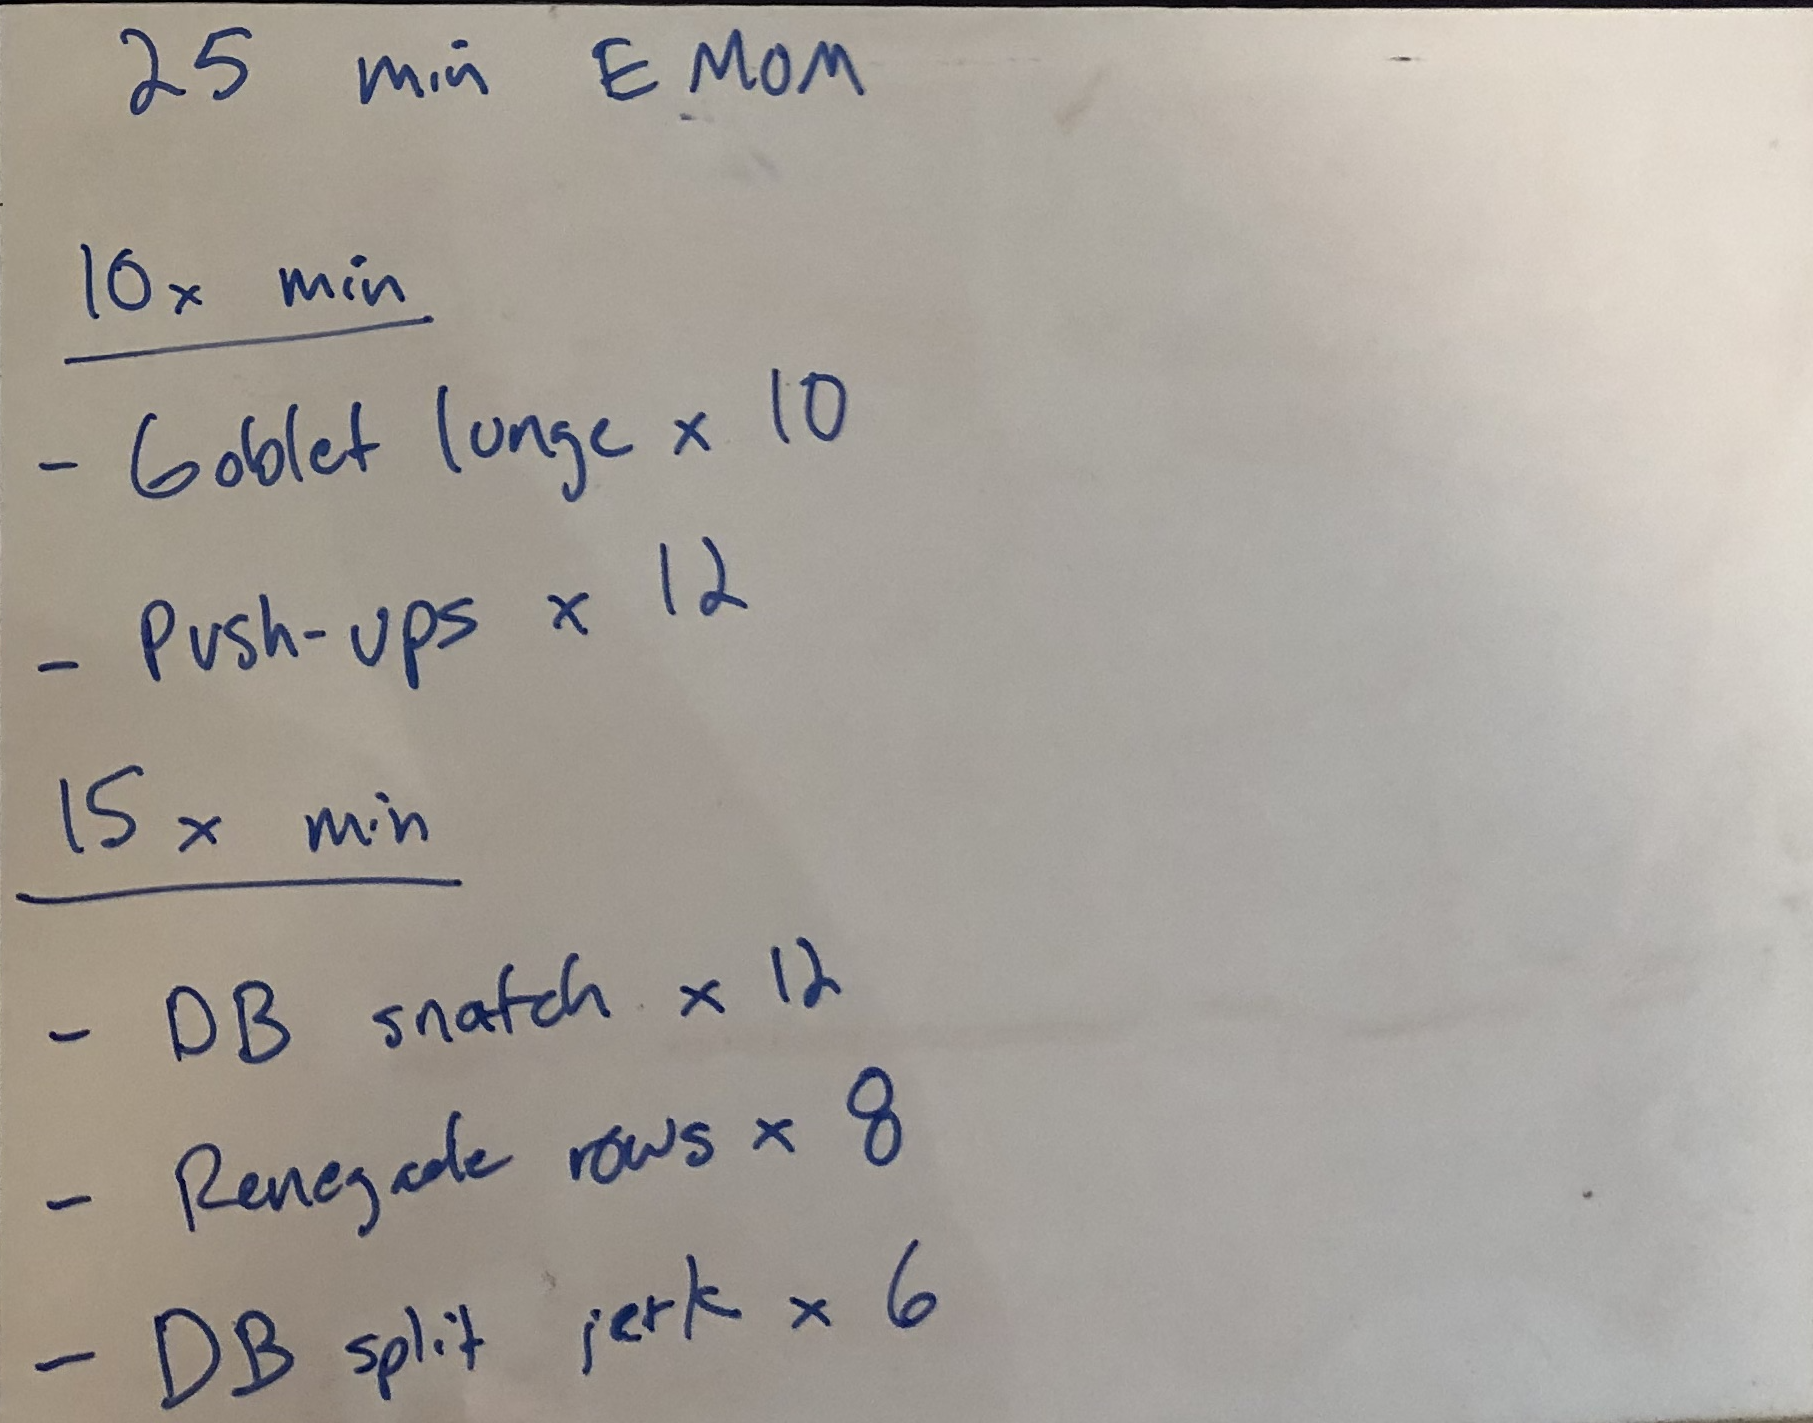 25 min EMOM
10x min
- Goblet lunge x 10
- Push-ups x 12
15 x min
- DB snatch x 12
- Renegade rows x 8
- DB split jerk x 6